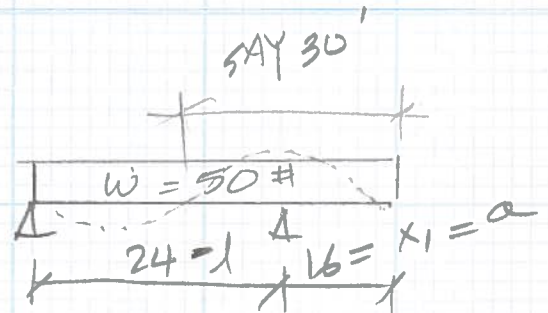 SAY 30'
w = 50 #
24 = l 16 = x₁ = a